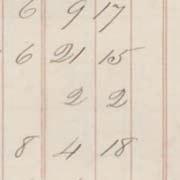 6 9 17
6 21 15
2 2
8 4 18